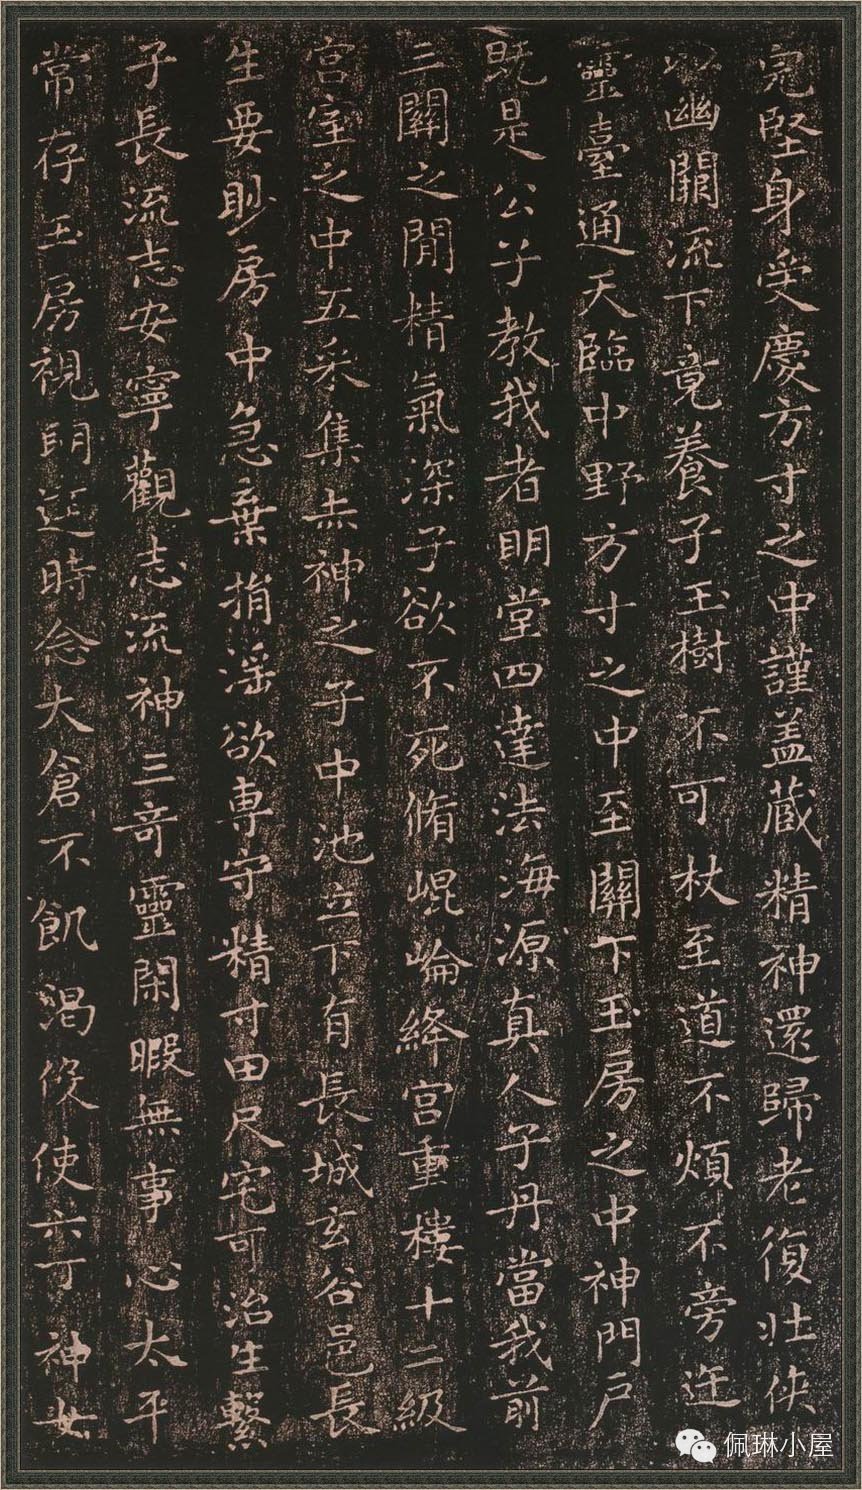 完堅身受慶方寸之中謹盖藏精神還歸老復壯俠
以幽關流下竟養子玉樹不可杖至道不煩不旁迕
靈臺通天臨中野方寸之中至關下玉房之中神門戶
既是公子教我者明堂四達法海源真人子丹當我前
三關之間精氣深子欲不死脩崐崘絳宮重樓十二級
宮室之中五采集赤神之子中池立下有長城玄谷邑長
生要眇房中急棄捐淫欲専守精寸田尺宅可治生繫
子長流志安寧觀志流神三奇靈閑暇無事心太平
常存玉房視明達時念大倉不飢渴役使六丁神女
佩琳小屋